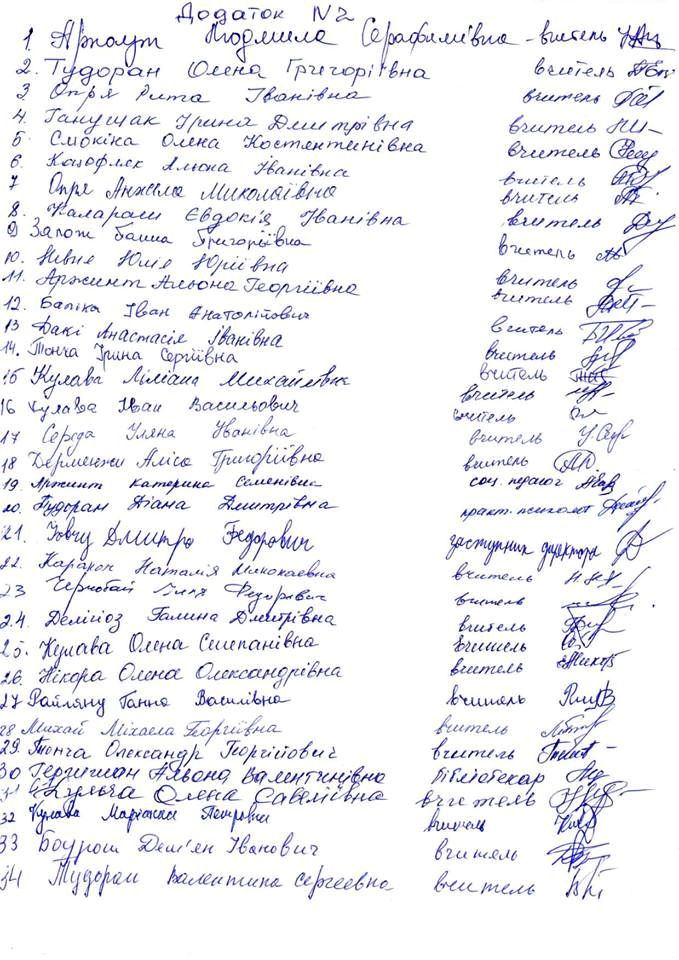 Додаток N2
1. Арнаут Людмила Серафимівна - вчитель
2. Тудоран Олена Григоріївна вчитель
3. Опря Рита Іванівна вчитель
4. Ганущак Ірина Дмитрівна вчитель
5. Смокіна Олена Костянтинівна вчитель
6. Альона Іванівна вчитель
7 Опря Анжела Миколаївна вчитель
8. Калараш Євдокія Іванівна вчитель
9 Григоріївна вчитель
10. Юлія Юріївна вчитель
11. Аржинт Альона Георгіївна вчитель
12. Баліка Іван Анатолійович вчитель
13 Факі Анастасія Іванівна вчитель
14. Тонча Ірина Сергіївна вчитель
15 Кулава Ліліана Михайлівна вчитель
16 Кулава Іван Васильович вчитель
17 Середа Уляна Іванівна вчитель
18 Дерменжи Аліса Григоріївна вчитель
19. Аржинт Катерина Семенівна соц. педагог
20. Тудоран Діана Дмитрівна практ. психолог
21. Дмитро Федорович заступник директора
22. Наталія Миколаевна вчитель
23 Чернобай Федорович вчитель
24. Делігіоз Галина Дмитрівна вчитель
25. Кулава Олена Степанівна вчитель
26. Нікора Олена Олександрівна вчитель
27 Райляну Ганна Василівна вчитель
28 Михай Міхаела Георгіївна вчитель
29. Тонча Олександр Георгійович вчитель
30 Альона Валентинівна бібліотекар
31 Олена Савеліївна вчитель
32 Кулава Петрівна вчитель
33 Боурош Дем'ян Іванович вчитель
34 Тудоран Валентина Сергеевна вчитель